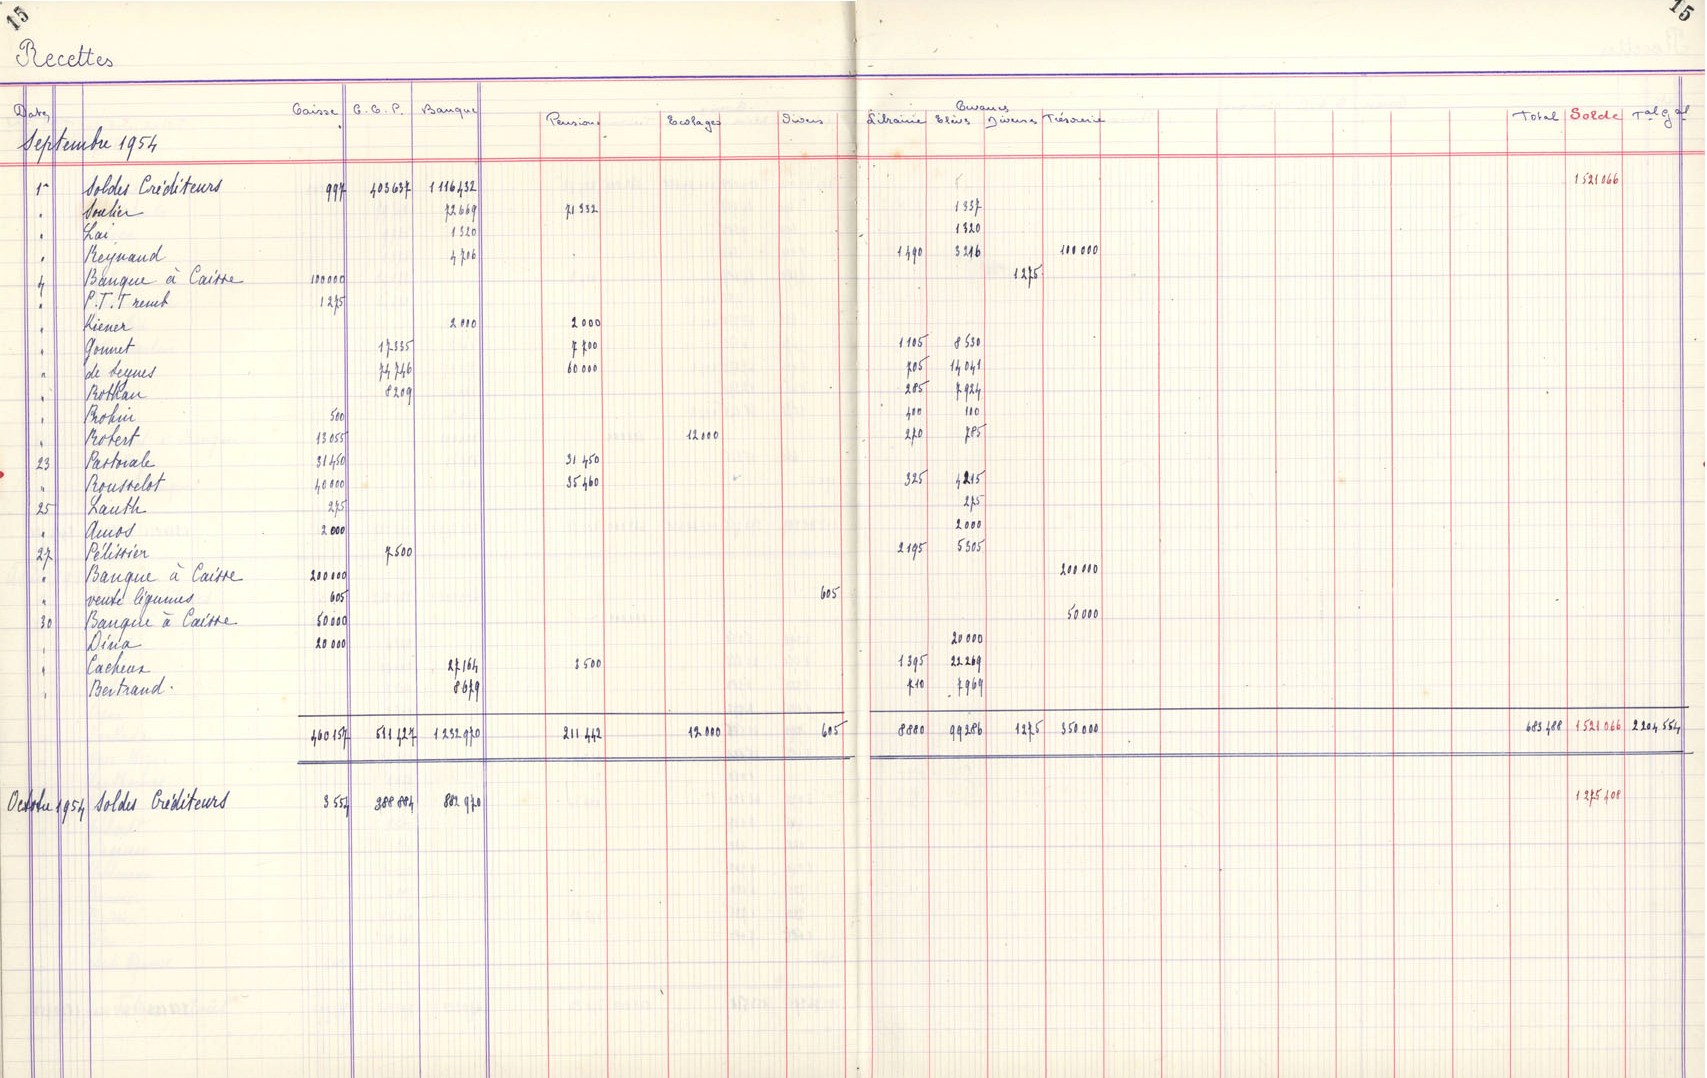 15 15
Recettes
Dates Caisse C.C.P. Banque Pensions Ecolages Divers Librairie Elèves Avances Diverses Trésorerie Total Solde Tal Gal
Septembre 1954
1er Soldes Créditeurs 997 403637 1116432 1521066
" Soulier 72669 71332 1337
" Lai 1320 1320
" Reynaud 4706 1490 3216 100000
4 Banque à Caisse 100000 1275
" P.T.T remb 1275
" Kiener 2000 2000
" Gonnet 17335 7700 1105 8530
" de Seynes 74746 60000 705 14041
" Rothan 8209 285 7924
" Brohin 500 400 100
" Robert 13055 12000 270 785
23 Pastorale 31450 31450
" Rousselot 40000 35460 325 4215
25 Lauth 275 275
" Amos 2000 2000
27 Pélissier 7500 2195 5305
" Banque à Caisse 200000 200000
" vente légumes 605 605
30 Banque à Caisse 50000 50000
" Diria 20000 20000
" Cacheux 27164 3500 1395 22269
" Bertrand. 8679 710 7969
460157 511427 1232970 211442 12000 605 8880 99286 1275 350000 683488 1521066 2204554
Octobre 1954 Soldes Créditeurs 3554 388884 882970 1275408